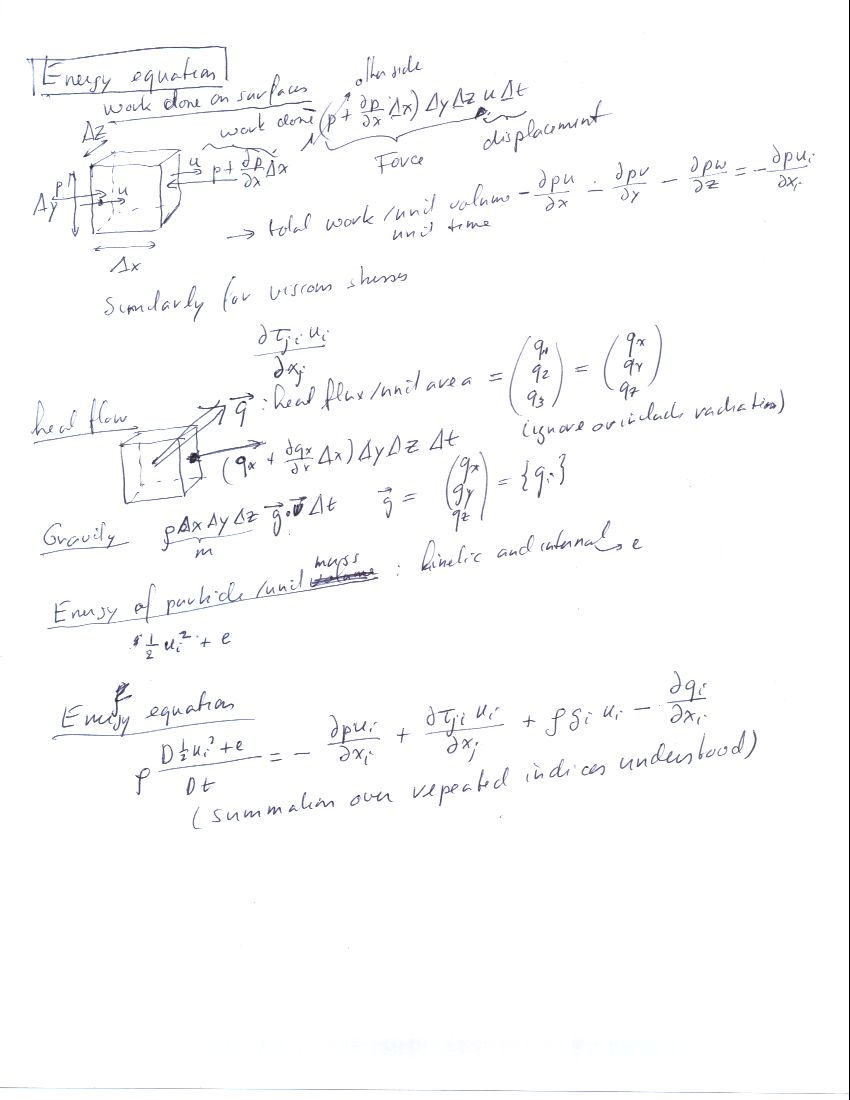 Energy equation
work done on surfaces
other side
work done (p + ∂p/∂x Δx) Δy Δz u Δt
Force
displacement
Δz
u
p + ∂p/∂x Δx
p
u
Δy
Δx
→ total work/unit volume unit time - ∂pu/∂x - ∂pv/∂y - ∂pw/∂z = - ∂pui/∂xi
Similarly for viscous stresses
∂τji ui/∂xj
heat flow
q⃗ : heat flux/unit area = (q1 q2 q3) = (qx qy qz)
(ignore or include radiation)
(qx + ∂qx/∂x Δx) Δy Δz Δt
Gravity ρ Δx Δy Δz g⃗·v⃗ Δt g⃗ = (gx gy gz) = {gi}
m
Energy of particle/unit mass : kinetic and internal, e
½ ui² + e
Energy equation
ρ D ½ui² + e / Dt = - ∂pui/∂xi + ∂τji ui/∂xj + ρ gi ui - ∂qi/∂xi
(summation over repeated indices understood)